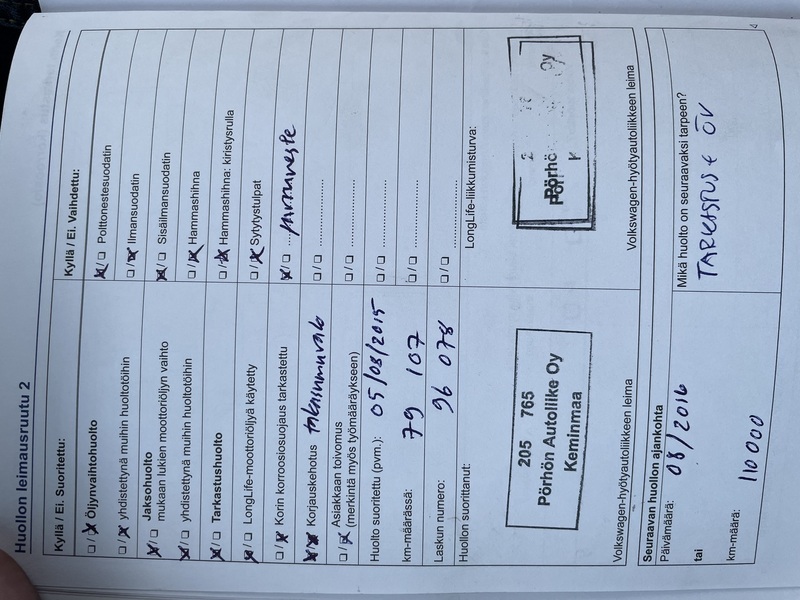 Huollon leimausruutu 2
Kyllä / Ei. Suoritettu:
☐/☒ Öljynvaihtohuolto
☐/☒ yhdistettynä muihin huoltotöihin
Jaksohuolto
☒/☐ mukaan lukien moottoriöljyn vaihto
☒/☐ yhdistettynä muihin huoltotöihin
☒/☐ Tarkastushuolto
☒/☐ LongLife-moottoriöljyä käytetty
☐/☒ Korin korroosiosuojaus tarkastettu
☒/☒ Korjauskehotus takasumuvalo
Asiakkaan toivomus
☐/☒ (merkintä myös työmääräykseen)
Huolto suoritettu (pvm.): 05/08/2015
km-määrässä: 79 107
Laskun numero: 96 078
Huollon suorittanut:
205 765
Pörhön Autoliike Oy
Keminmaa
Volkswagen-hyötyautoliikkeen leima
Kyllä / Ei. Vaihdettu:
☒/☐ Polttonestesuodatin
☐/☒ Ilmansuodatin
☒/☐ Sisäilmansuodatin
☐/☒ Hammashihna
☐/☒ Hammashihna: kiristysrulla
☐/☒ Sytytystulpat
☒/☐ .. jarruneste
☐/☐ ....................
☐/☐ ....................
☐/☐ ....................
☐/☐ ....................
☐/☐ ....................
LongLife-liikkumisturva:
Oy
Volkswagen-hyötyautoliikkeen leima
Seuraavan huollon ajankohta
Päivämäärä: 08/2016
tai
km-määrä: 110 000
Mikä huolto on seuraavaksi tarpeen?
TARKASTUS + ÖV
4